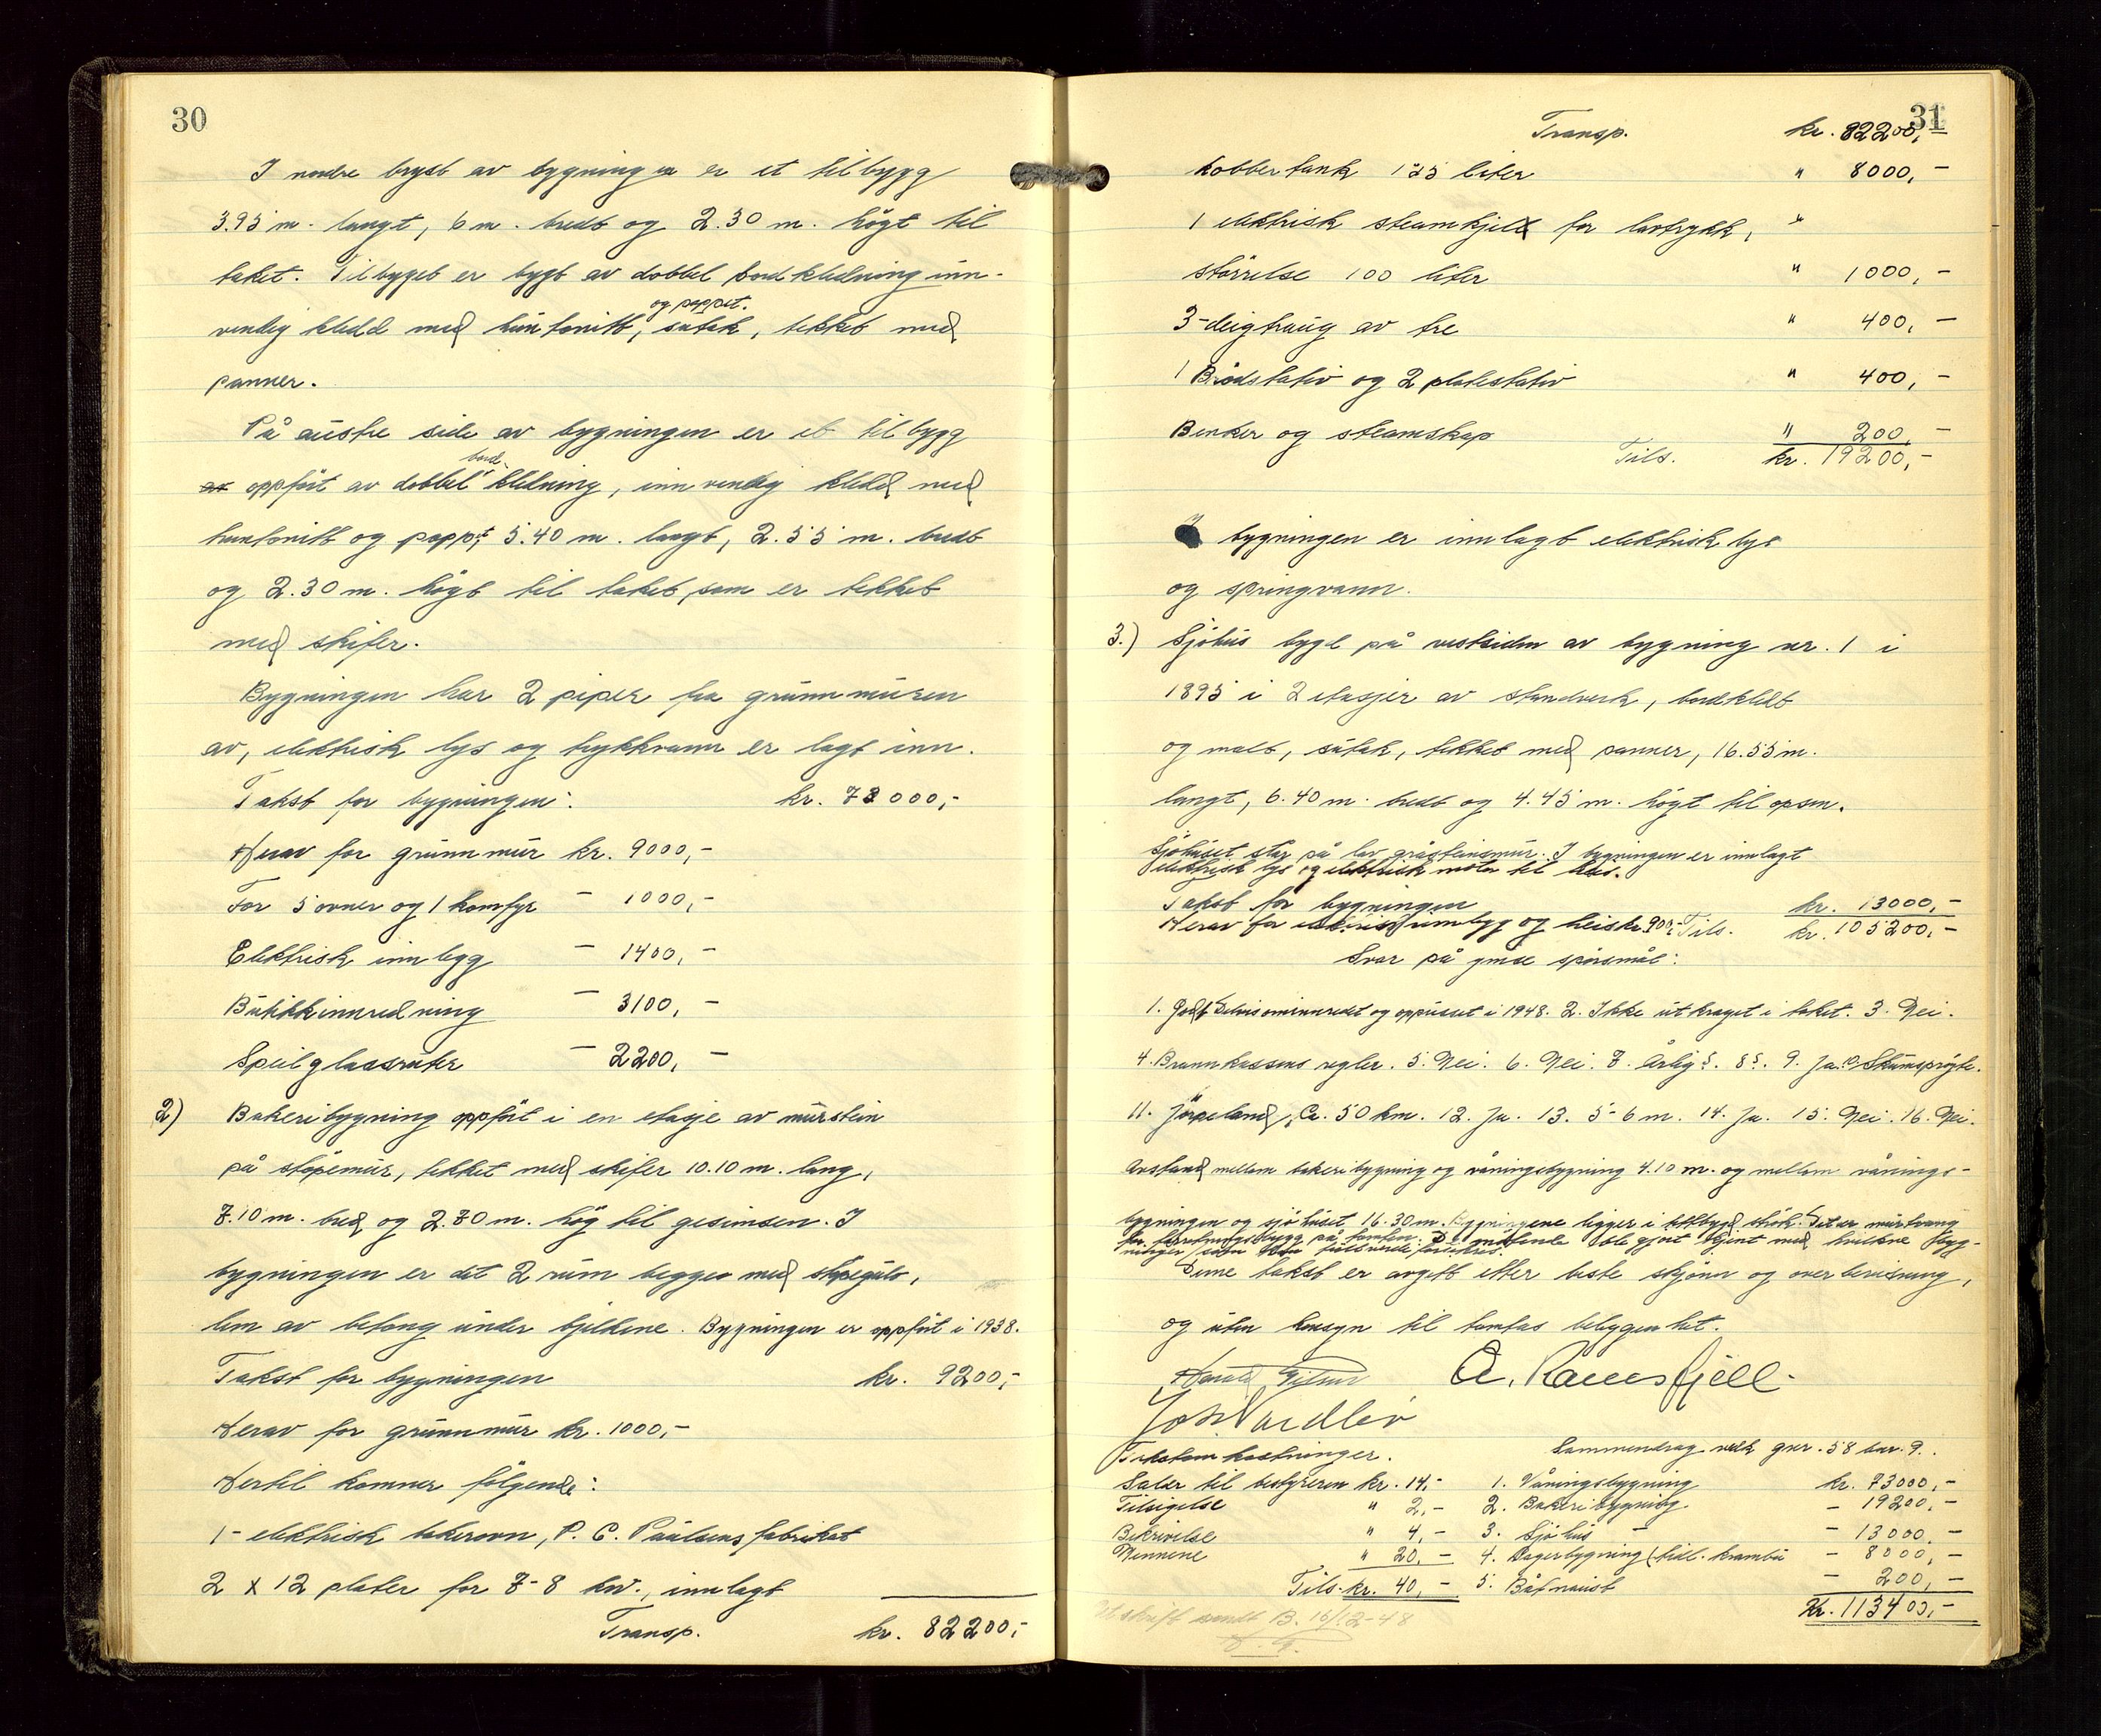 30
I nordre bryst av bygningen er et tilbygg
3.95 m. langt, 6 m. bredt og 2.30 m. högt til
taket. Tilbyget er bygt av dobbel bordkledning inn-
og pappet.
vendig kledd med huntonitt, sutak, tekket med
panner.
På austre side av bygningen er et tilbygg
bord-
av oppfört av dobbel kledning, innvendig kledd med
huntonitt og pappet, 5.40 m. langt, 2.55 m. bredt
og 2.30 m. högt til taket, som er tekket
med skifer.
Bygningen har 2 piper fra grunnmuren
av, elektrisk lys og trykkvann er lagt inn.
Takst for bygningen: kr. 73000,-
Herav for grunnmur kr. 9000,-
For 5 ovner og 1 komfyr - 1000,-
Elektrisk innlegg - 1400,-
Butikkinnredning - 3100,-
Speilglassruter - 2200,-
2) Bakeribygning oppfört i en etasje av murstein
på stöpemur, tekket med skifer 10.10 m. lang,
7.10 m. bred og 2.70 m. hög til gesimsen. I
bygningen er det 2 rum begge med stöpegulv,
lem av betong under bjelkene. Bygningen er oppfört i 1938.
Takst for bygningen kr. 9200,-
Herav for grunnmur kr. 1000,-
Hertil kommer fölgende:
1- elektrisk bakerovn, P. C. Paulsens fabrikat
2 x 12 plater for 7-8 kw., innlagt
Transp. kr. 82200,-
31
Transp. kr. 82200,-
kobbertank 125 liter " 8000,-
1 elektrisk steamkjel for lavtrykk, "
störrelse 100 liter " 1000,-
3-deigtraug av tre " 400,-
1 Brödstativ og 2 platestativ " 400,-
Benker og steamskap " 200,-
Tils. kr. 19200,-
I bygningen er innlagt elektrisk lys
og springvann.
3.) Sjöhus bygd på vestsiden av bygning nr. 1 i
1895 i 2 etasjer av standverk, bordkledt
og malt, sutak, tekket med panner, 16.55 m.
langt, 6.40 m. bredt og 4.45 m. högt til opsen.
Sjöhuset står på lav gråsteinsmur. I bygningen er innlagt
elektrisk lys og elektrisk motor til heis.
Takst for bygningen kr. 13000,-
Herav for elektrisk innlegg og heis kr. 900,- Tils. kr. 105200,-
Svar på ymse spörsmål:
1. Godt. Delvis ominnredt og oppusset i 1948. 2. Ikke utkraget i taket. 3. Nei.
4. Brannkassens regler. 5. Nei. 6. Nei. 7. Årlig. 8. 9. Ja. 10. Skumspröyte.
11. Jörpeland, Ca. 50 km. 12. Ja. 13. 5-6 m. 14. Ja. 15. Nei. 16. Nei.
Avstand mellom bakeribygning og våningsbygning 4.10 m. og mellom vånings-
bygningen og sjöhuset 16.30 m. Bygningene ligger i tettbygd strök. Det er murtvang
for forretningsbygg på tomten. De mötende ble gjort kjent med hvilke byg-
ninger som fullverdiforsikres.
Denne takst er avgitt etter beste skjönn og overbevisning,
og uten hensyn til tomtas beliggenhet.
A. Ramsfjell.
Takstomkostninger. Sammendrag vedk. gnr. 58 bnr. 9.
Salær til bestyreren kr. 14,- 1. Våningsbygning kr. 73000,-
Tilsigelse " 2,- 2. Bakeribygning - 19200,-
Beskrivelse " 4,- 3. Sjöhus - 13000,-
Mennene " 20,- 4. Lagerbygning (tidl. krambu - 8000,-
Tils. kr. 40,- 5. Båtnaust - 200,-
Kr. 113400,-
Utskrift sendt B. 16/12-48